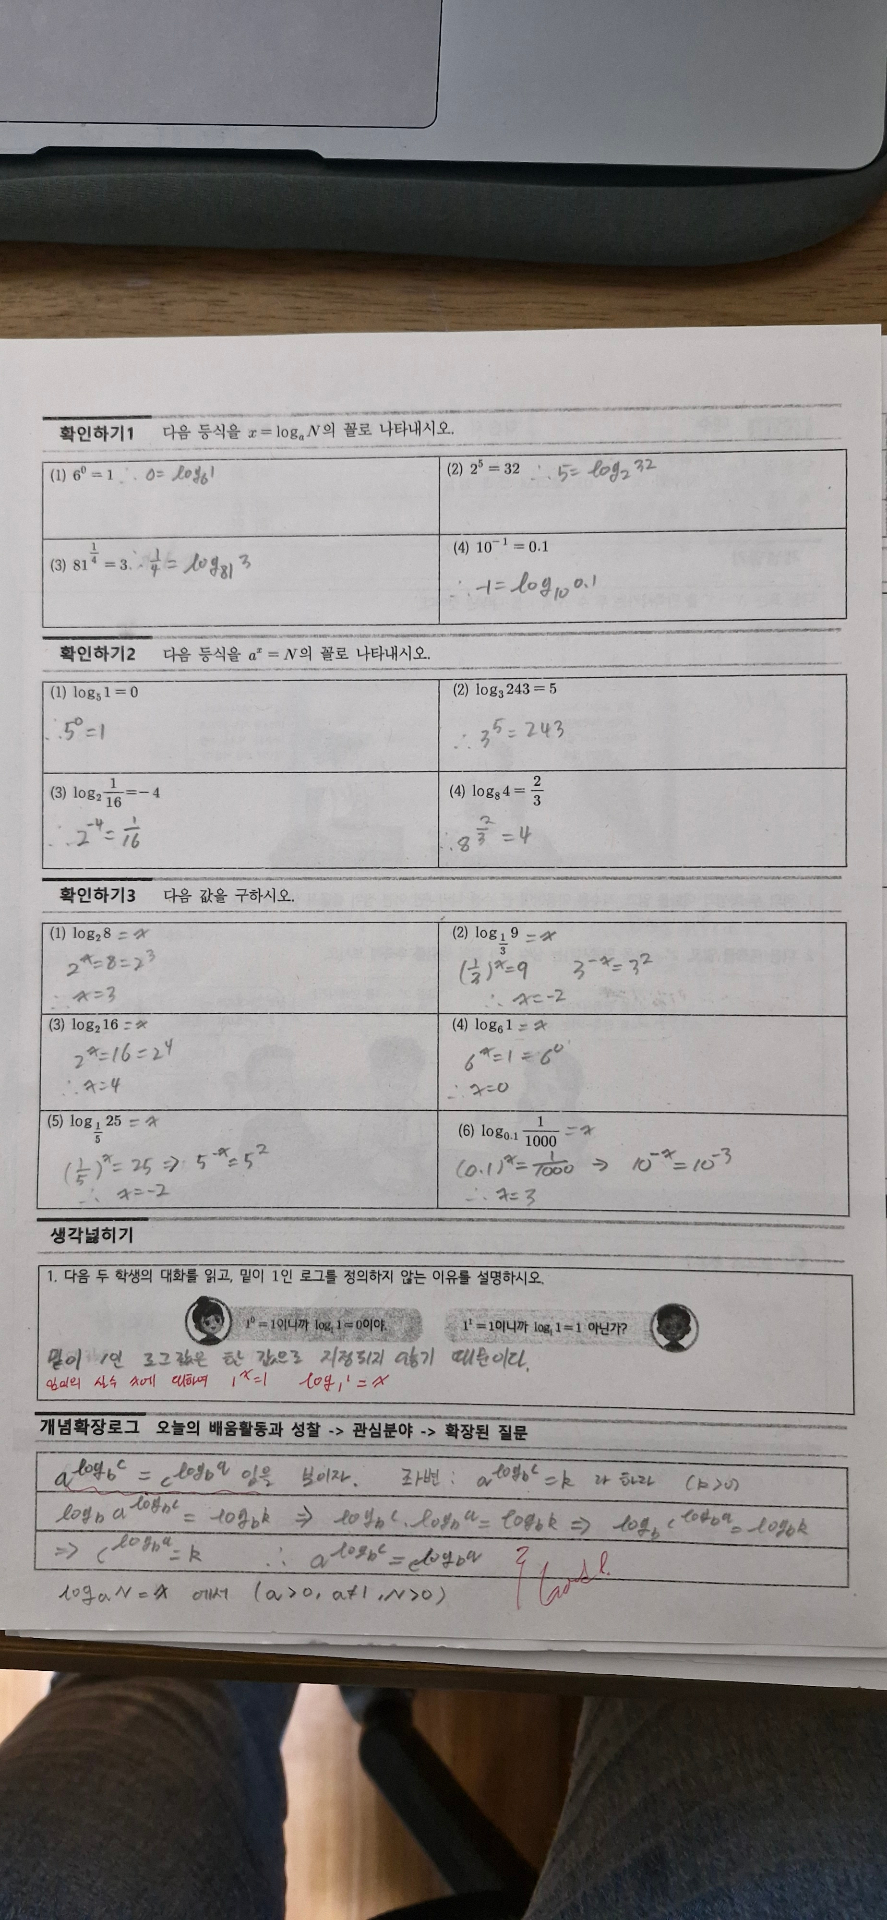 확인하기1 다음 등식을 x = logₐN의 꼴로 나타내시오.
(1) 6⁰ = 1 ∴ 0 = log₆1
(2) 2⁵ = 32 ∴ 5 = log₂32
(3) 81^(1/4) = 3 ∴ 1/4 = log₈₁3
(4) 10⁻¹ = 0.1
∴ -1 = log₁₀0.1
확인하기2 다음 등식을 aˣ = N의 꼴로 나타내시오.
(1) log₅1 = 0
∴ 5⁰ = 1
(2) log₃243 = 5
∴ 3⁵ = 243
(3) log₂ 1/16 = -4
∴ 2⁻⁴ = 1/16
(4) log₈4 = 2/3
∴ 8^(2/3) = 4
확인하기3 다음 값을 구하시오.
(1) log₂8 = x
2ˣ = 8 = 2³
∴ x = 3
(2) log_(1/3) 9 = x
(1/3)ˣ = 9 3⁻ˣ = 3²
∴ x = -2
(3) log₂16 = x
2ˣ = 16 = 2⁴
∴ x = 4
(4) log₆1 = x
6ˣ = 1 = 6⁰
∴ x = 0
(5) log_(1/5) 25 = x
(1/5)ˣ = 25 ⇒ 5⁻ˣ = 5²
∴ x = -2
(6) log₀.₁ 1/1000 = x
(0.1)ˣ = 1/1000 ⇒ 10⁻ˣ = 10⁻³
∴ x = 3
생각넓히기
1. 다음 두 학생의 대화를 읽고, 밑이 1인 로그를 정의하지 않는 이유를 설명하시오.
1⁰ = 1이니까 log₁1 = 0이야.
1¹ = 1이니까 log₁1 = 1 아닌가?
밑이 1인 로그값은 한 값으로 지정되지 않기 때문이다.
임의의 실수 x에 대하여 1ˣ = 1 log₁1 = x
개념확장로그 오늘의 배움활동과 성찰 -> 관심분야 -> 확장된 질문
a^(log_b c) = c^(log_b a) 임을 보이자. 좌변 : a^(log_b c) = k 라 하라 (k>0)
log_b a^(log_b c) = log_b k ⇒ log_b c · log_b a = log_b k ⇒ log_b c^(log_b a) = log_b k
⇒ c^(log_b a) = k ∴ a^(log_b c) = c^(log_b a)
logₐN = x 에서 (a>0, a≠1, N>0)